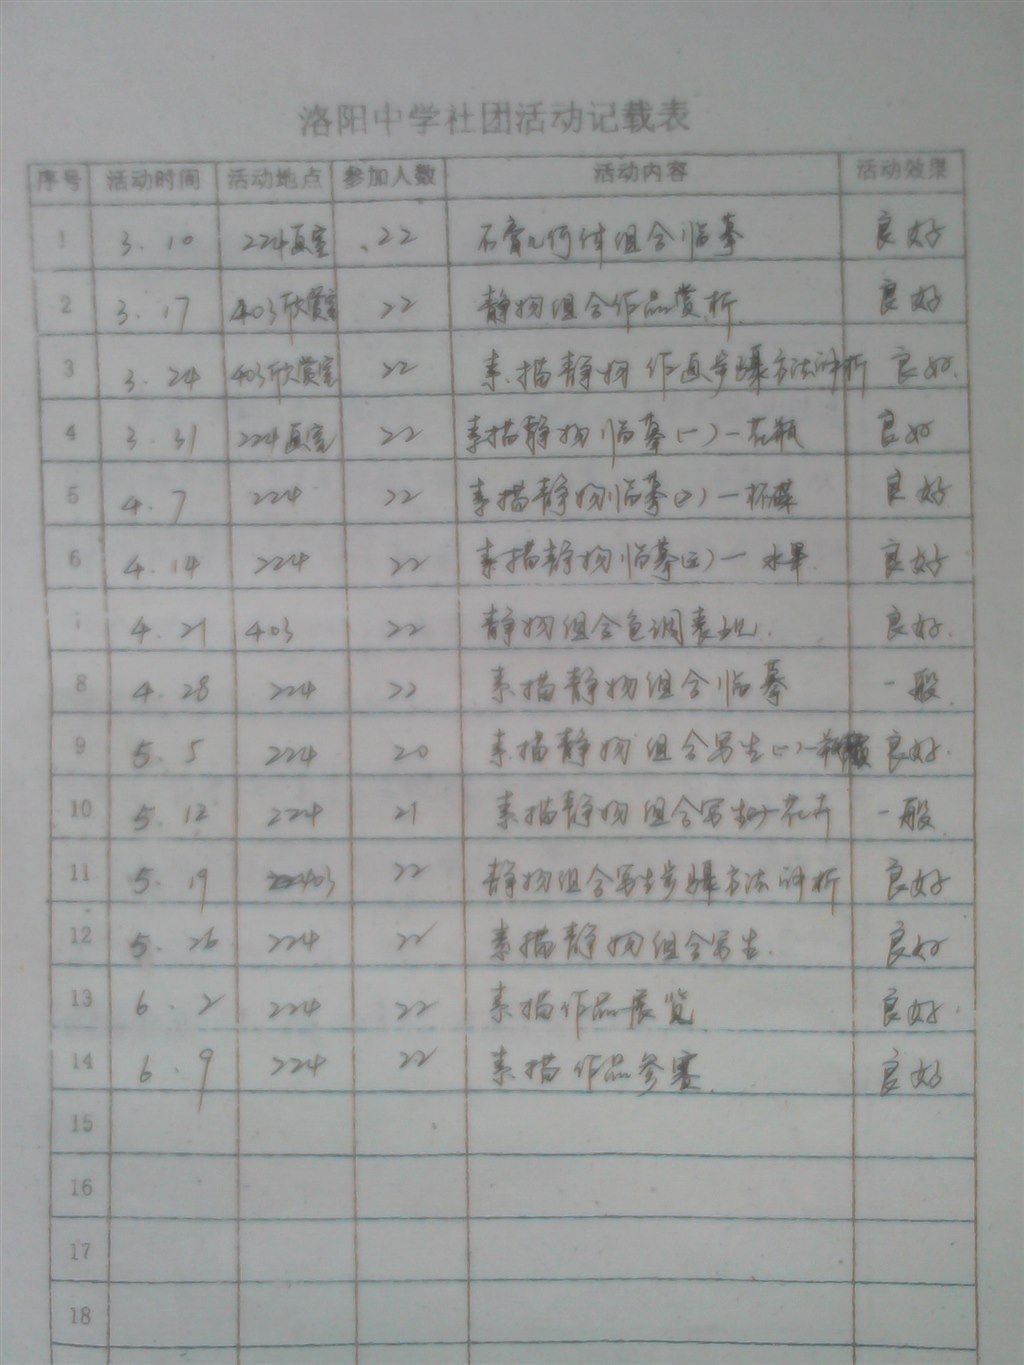 洛阳中学社团活动记载表
序号 活动时间 活动地点 参加人数 活动内容 活动效果
1 3.10 224画室 22 石膏几何体组合临摹 良好
2 3.17 403欣赏室 22 静物组合作品赏析 良好
3 3.24 403欣赏室 22 素描静物作画步骤方法评析 良好.
4 3.31 224画室 22 素描静物临摹(一)—花瓶 良好
5 4.7 224 22 素描静物临摹(二)—杯碟 良好
6 4.14 224 22 素描静物临摹(三)—水果. 良好
4.21 403 22 静物组合色调表现. 良好.
8 4.28 224 22 素描静物组合临摹 一般.
9 5.5 224 20 素描静物组合写生(一)— 良好.
10 5.12 224 21 素描静物组合写生 花卉 一般.
11 5.19 403 22 静物组合写生步骤方法评析 良好
12 5.26 224 22 素描静物组合写生. 良好
13 6.2 224 22 素描作品展览 良好.
14 6.9 224 22 素描作品参赛. 良好
15
16
17
18